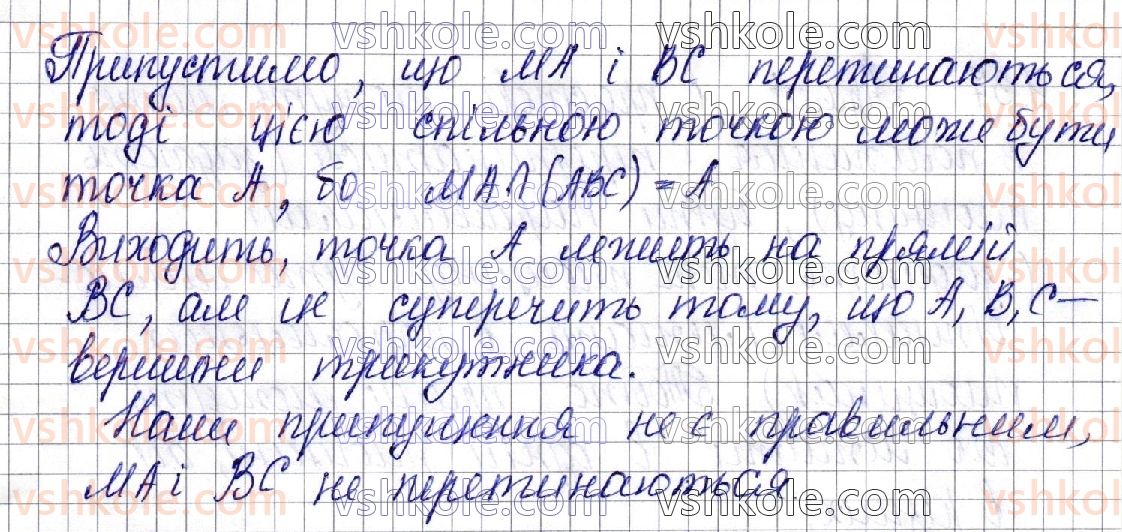 Припустимо, що MA і BC перетинаються,
тоді цією спільною точкою може бути
точка A, бо MA∩(ABC) = A
Виходить, точка A лежить на прямій
BC, але це суперечить тому, що A, B, C —
вершини трикутника.
Наше припущення не є правильним,
MA і BC не перетинаються.